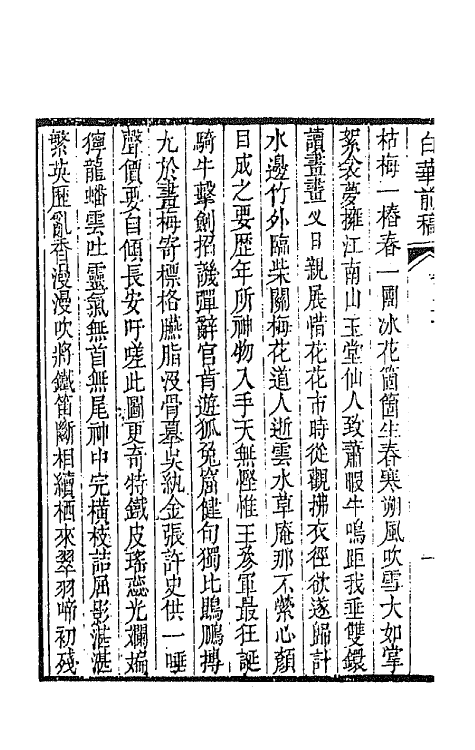 白華前稿
枯梅一樁春一團冰花箇箇生春寒朔風吹雪大如掌
絮衾夢擁江南山玉堂仙人致蕭暇牛鳴距我垂雙鐶
讀畫畫叉日親展惜花花市時從觀拂衣徑欲遂歸計
水邊竹外臨柴關梅花道人逝雲水草庵那不縈心顏
目成之要歷年所神物入手天無慳惟王參軍最狂誕
騎牛擊劍招譏彈辭官肯遊狐兔窟健句獨比鵰鵬摶
尤於畫梅寄標格臙脂沒骨摹吳紈金張許史供一唾
聲價要自傾長安吁嗟此圖更奇特鐵皮瑤蕊光斕斒
獰龍蟠雲吐靈氣無首無尾神中完橫枝詰屈影湛湛
繁英歷亂香漫漫吹將鐵笛斷相續栖來翠羽啼初殘